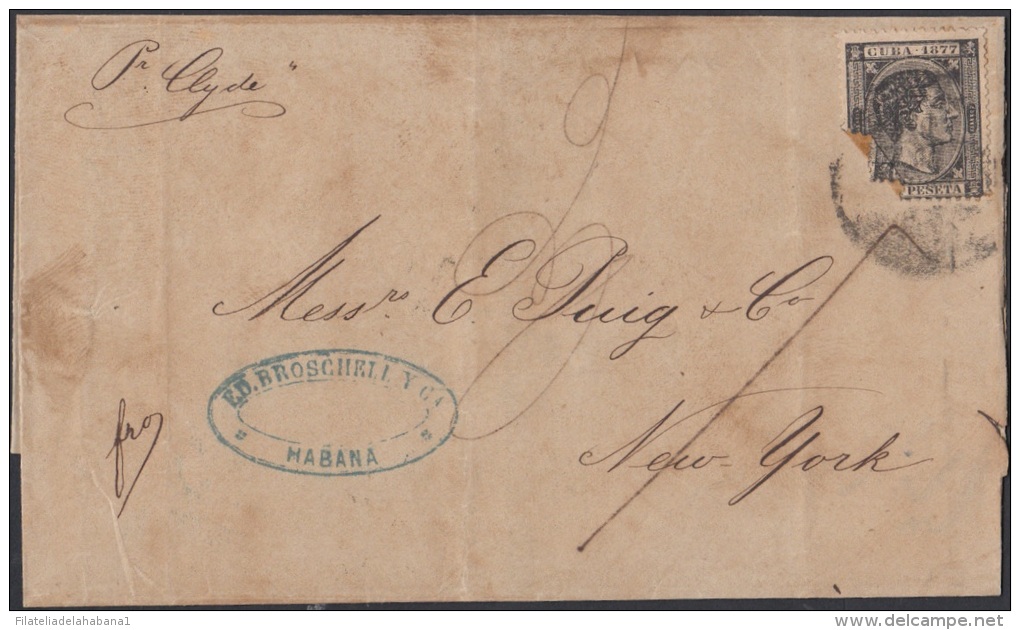 Pr. Clyde"
CUBA · 1877
PESETA
Messrs E. Puig & Co
ED. BROSCHELL Y CA
HABANA
fro
New-York
Filateliadelahabana1
www.delcampe.net